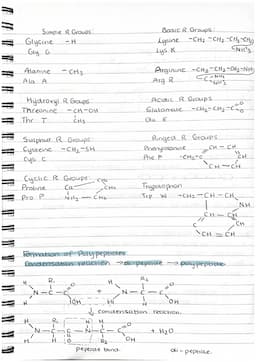 Simple R Groups:
Glycine -H
Gly G
Alanine -CH₃
Ala A
Hydroxyl R Groups
Threonine -CH-OH
Thr T CH₃
Sulphur R Groups:
Cysteine -CH₂-SH
Cys C
Cyclic R Groups:
Proline Cα CH₂ CH₂
Pro P NH₂ - CH₂
Basic R Groups:
Lysine -CH₂-CH₂-CH₂-CH₂
Lys K NH₃⁺
Arginine -CH₂-CH₂-CH₂-NH
Arg R C=NH₂ NH₂
Acidic R Groups
Glutamate -CH₂-CH₂-C O O
Glu E
Ringed R Groups:
Phenylalanine CH-CH
Phe F -CH₂-C CH
CH-CH
Tryptophan
Trp W -CH₂-C-CH
NH
CH-C
CH CH
CH=CH
Formation of Polypeptides
Condensation reaction → di-peptide → polypeptide
H R₁ O H R₂ O
N-C-C + N-C-C
H H OH H H OH
↓ condensation reaction
H R H R O
N-C-C-N-C-C + H₂O
H H O H OH
peptide bond di-peptide.